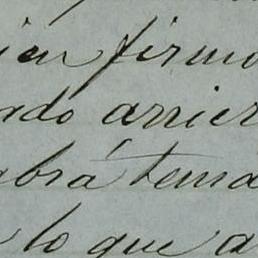 ien firmo
ado arrier
abrá tema
lo que a